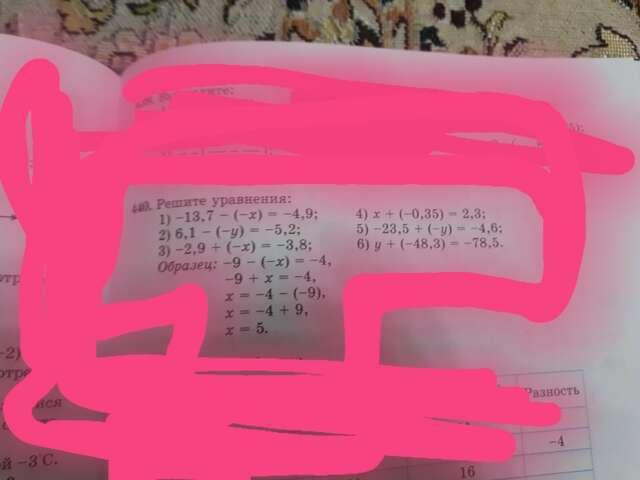 440. Решите уравнения:
1) –13,7 – (–x) = –4,9;
2) 6,1 – (–y) = –5,2;
3) –2,9 + (–x) = –3,8;
4) x + (–0,35) = 2,3;
5) –23,5 + (–y) = –4,6;
6) y + (–48,3) = –78,5.
Образец: –9 – (–x) = –4,
–9 + x = –4,
x = –4 – (–9),
x = –4 + 9,
x = 5.
–2)
й –3°C.
Разность
–4
16